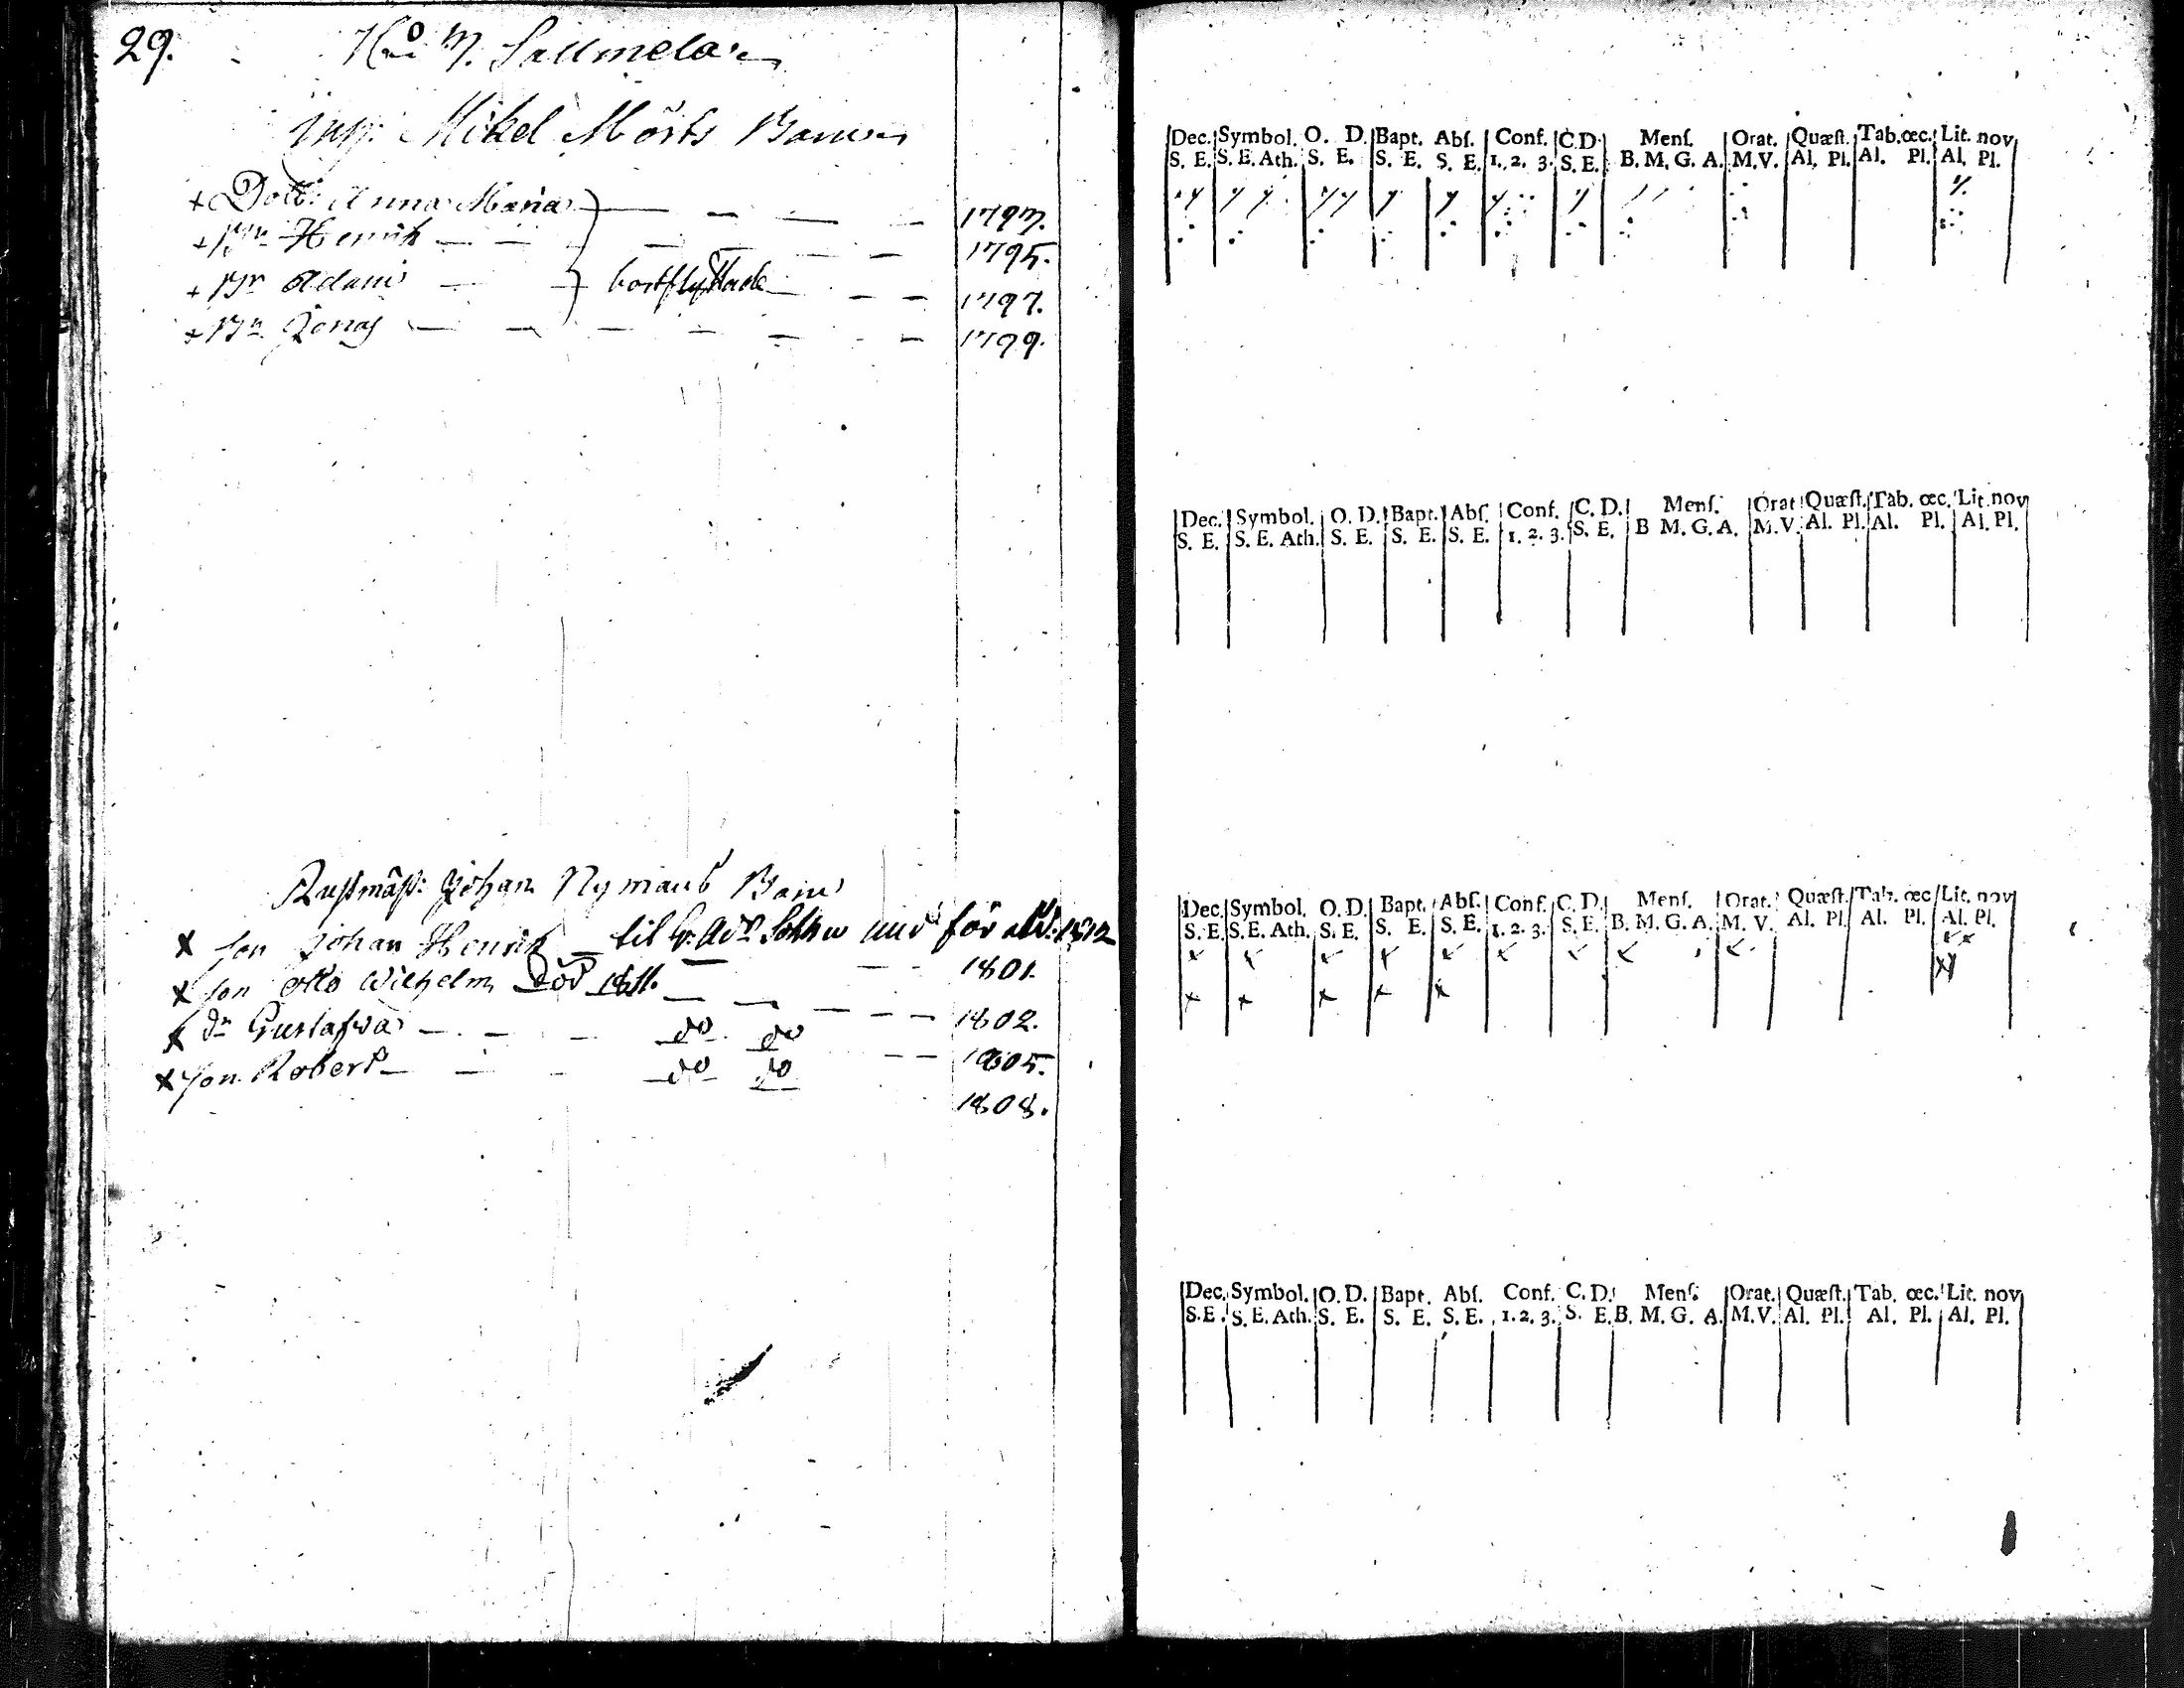 29.
N:o 7. Sallmela
Inh: Mikel Mörts Barn
+ Dott: Anna Maria — — — — 1793.
+ Sn Henrik — — — — — — 1795.
+ Sn Adam — — bortflyttade — — 1797.
+ Sn Jonas — — — — — — 1799.
Rustmäst: Johan Nymans Barn
x Son Johan Henrik til för 1812
1801.
x Son Otto Wilhelm död 1811. — — — — — 1802.
x Dr Gustafva — — — do do — — 1805.
x Son Robert — — — do do
1808.
Dec. Symbol. O. D. Bapt. Abſ. Conf. C.D. Menſ. Orat. Quæſt. Tab. œc. Lit. nov
S. E. S. E. Ath. S. E. S. E. S. E. 1. 2. 3. S. E. B. M. G. A. M. V. Al. Pl. Al. Pl. Al. Pl.
Dec. Symbol. O. D. Bapt. Abſ. Conf. C. D. Menſ. Orat Quæſt. Tab. œc. Lit. nov
S. E. S. E. Ath. S. E. S. E. S. E. 1. 2. 3. S. E. B M. G. A. M. V. Al. Pl. Al. Pl. Al. Pl.
Dec. Symbol. O. D. Bapt. Abſ. Conf. C. D. Menſ. Orat. Quæſt. Tab. œc Lit. nov
S. E. S. E. Ath. S. E. S. E. S. E. 1. 2. 3. S. E. B. M. G. A. M. V. Al. Pl. Al. Pl. Al. Pl.
Dec. Symbol. O. D. Bapt. Abſ. Conf. C. D. Menſ. Orat. Quæſt. Tab. œc. Lit. nov
S. E. S. E. Ath. S. E. S. E. S. E. 1. 2. 3. S. E. B. M. G. A. M. V. Al. Pl. Al. Pl. Al. Pl.